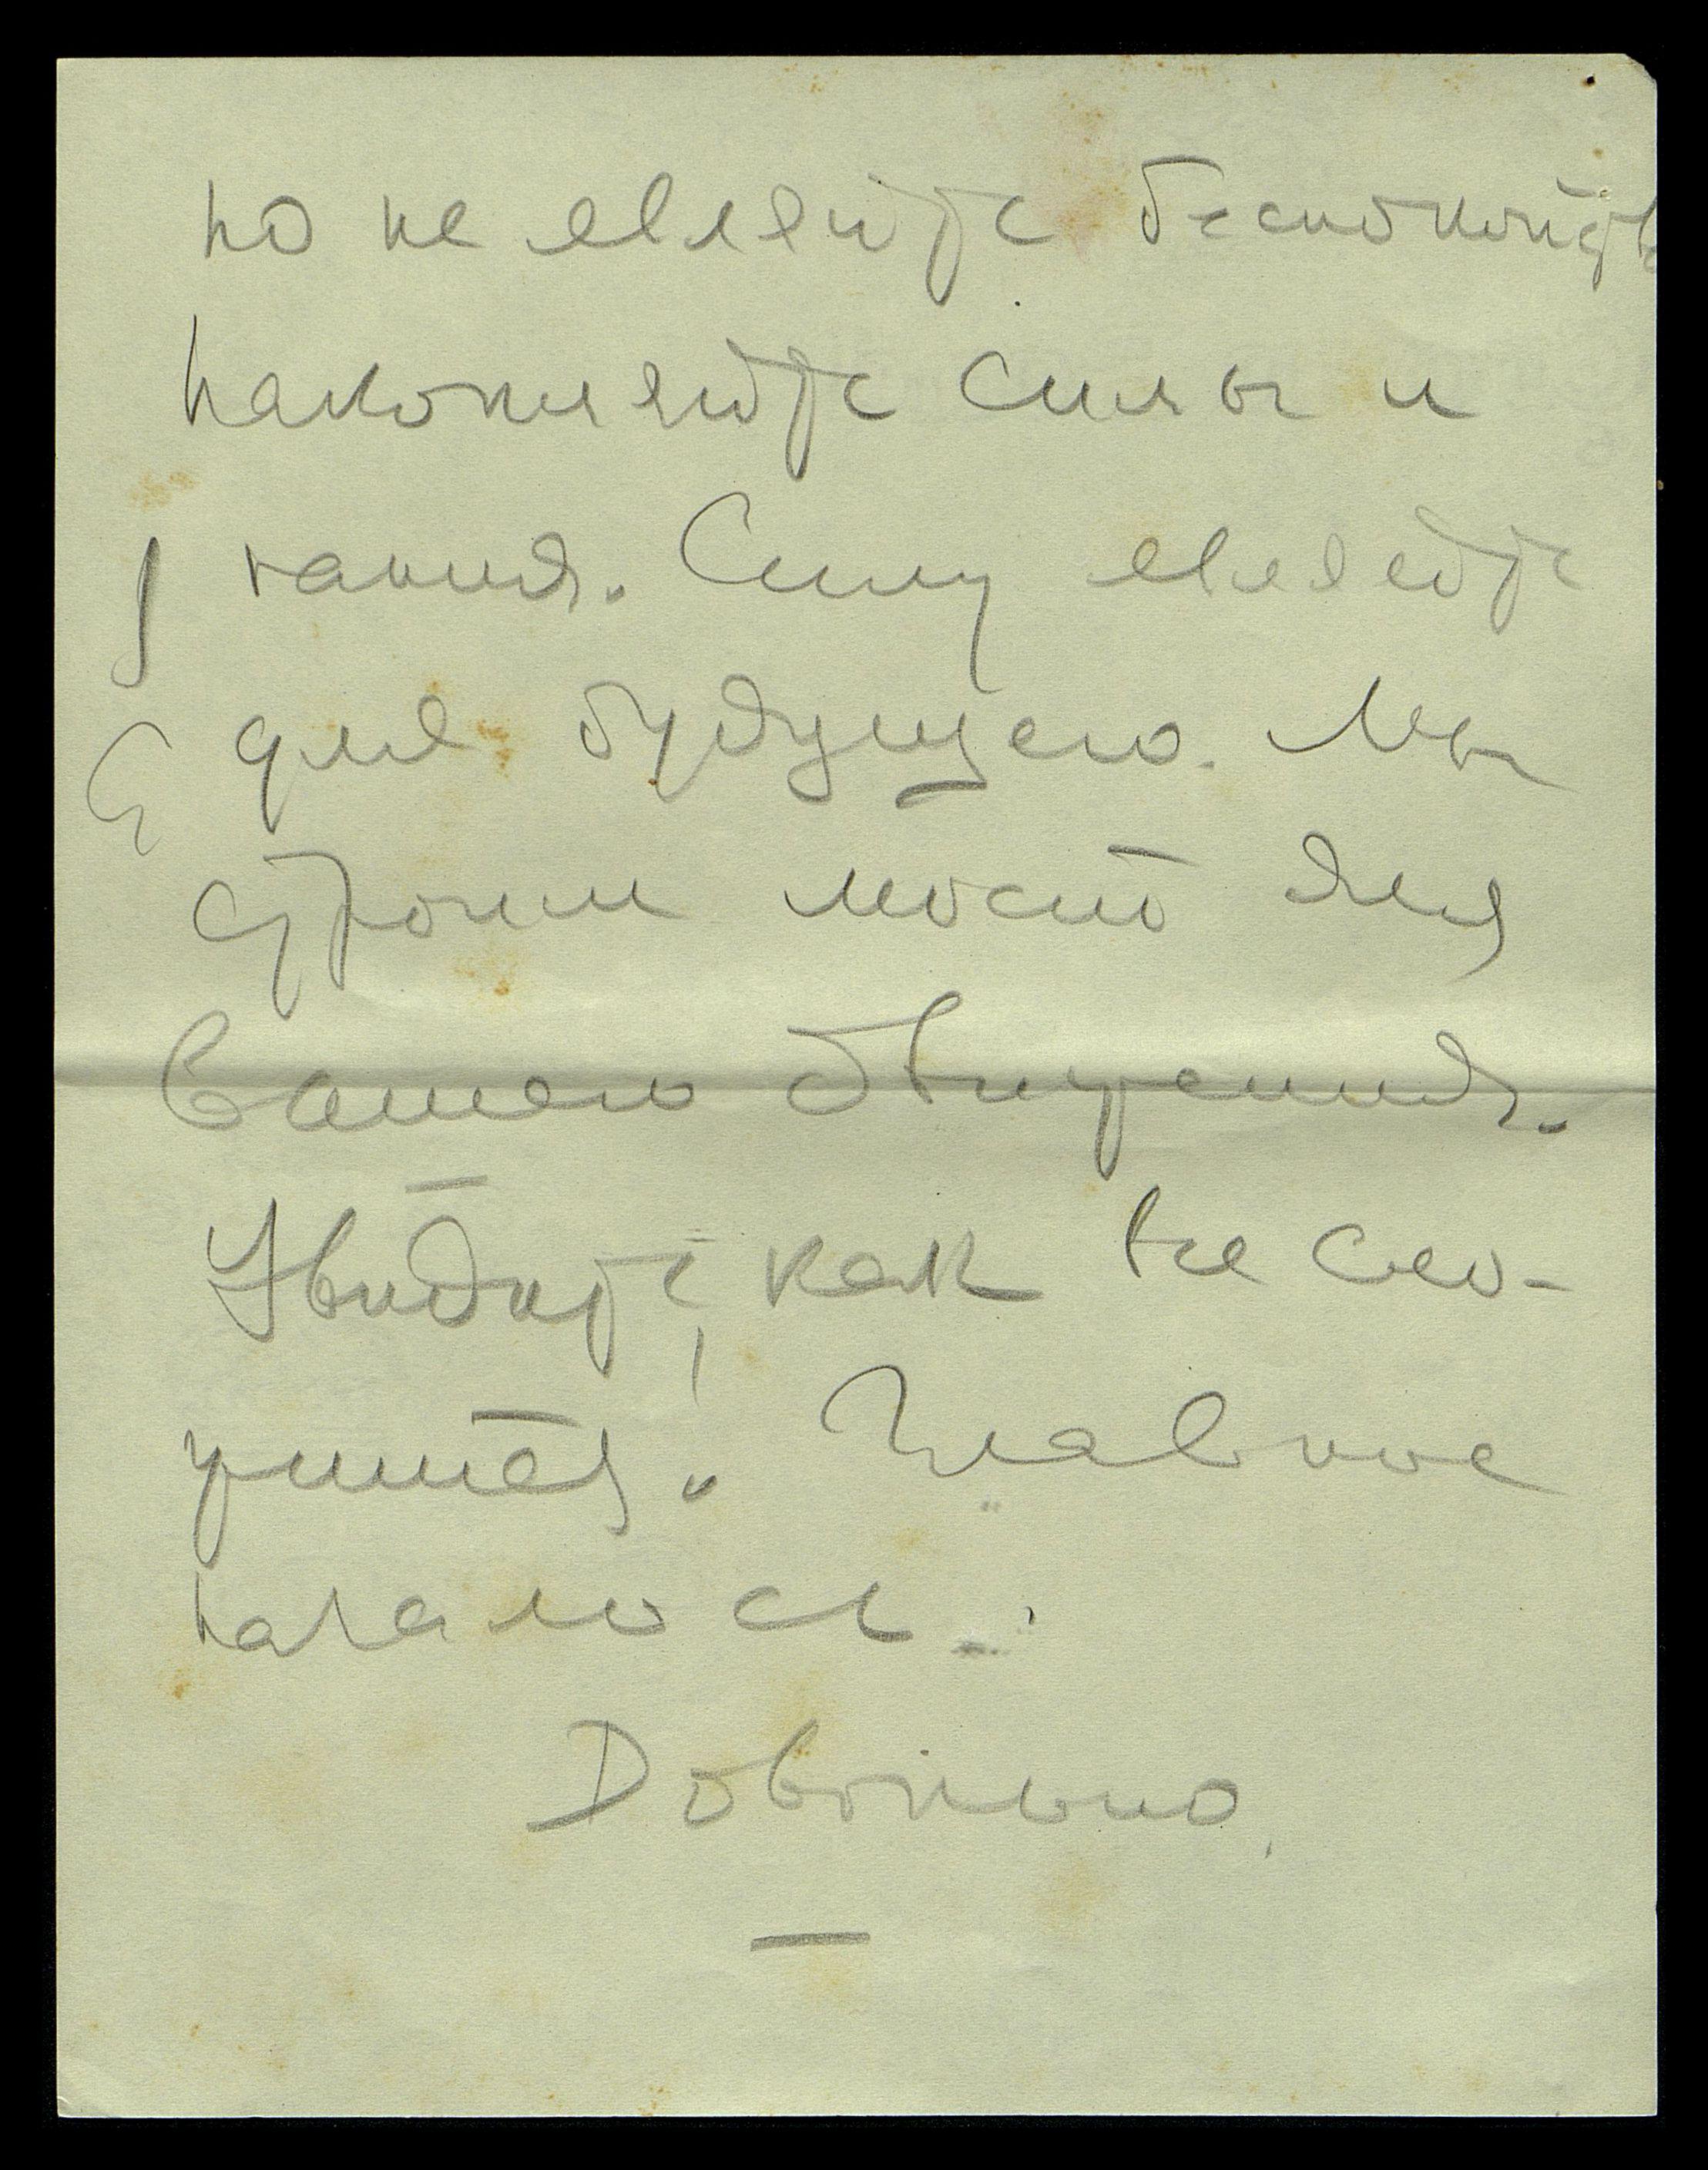 но не являйте беспокойств
накопляйте силы и
знания. Силу являйте
для будущего. Мы
строим мост для
Вашего движения.
Увидите, как все сло-
жится. Главное
началось.
Довольно.